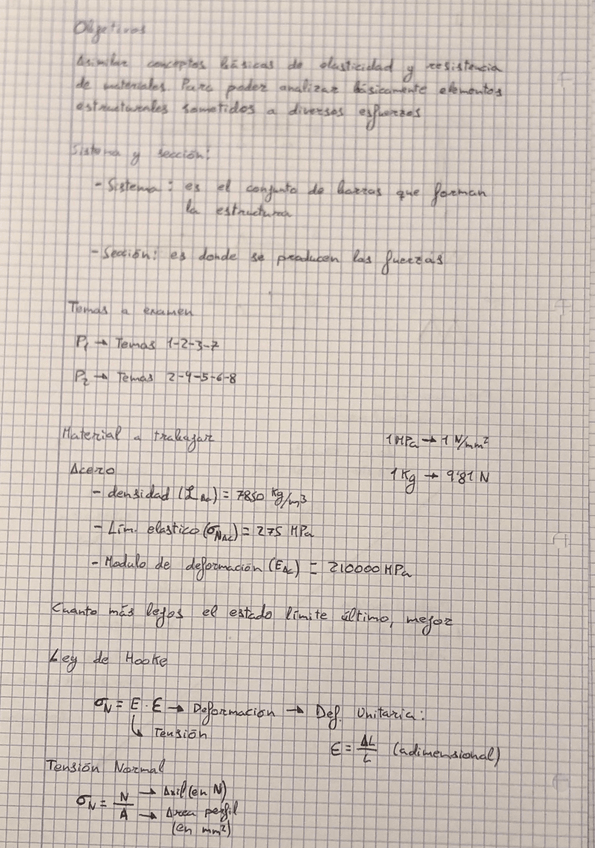 Objetivos
Asimilar conceptos básicos de elasticidad y resistencia
de materiales. Para poder analizar básicamente elementos
estructurales sometidos a diversos esfuerzos
Sistema y sección:
- Sistema: es el conjunto de barras que forman
la estructura
- Sección: es donde se producen las fuerzas
Temas a examen
P₁ → Temas 1-2-3-7
P₂ → Temas 2-4-5-6-8
Material a trabajar
1 MPa → 1 N/mm²
Acero
1 Kg → 9'81 N
- densidad ( Ac) = 7850 kg/m3
- Lím. elastico (σNAC) = 275 MPa
- Modulo de deformación (EAC) = 210000 MPa
Cuanto más lejos el estado límite último, mejor
Ley de Hooke
σN = E · ε → Deformación → Def. Unitaria:
↳ Tensión
ε = ΔL/L (adimensional)
Tensión Normal
σN = N/A → Axil (en N)
→ Area perfil
(en mm²)